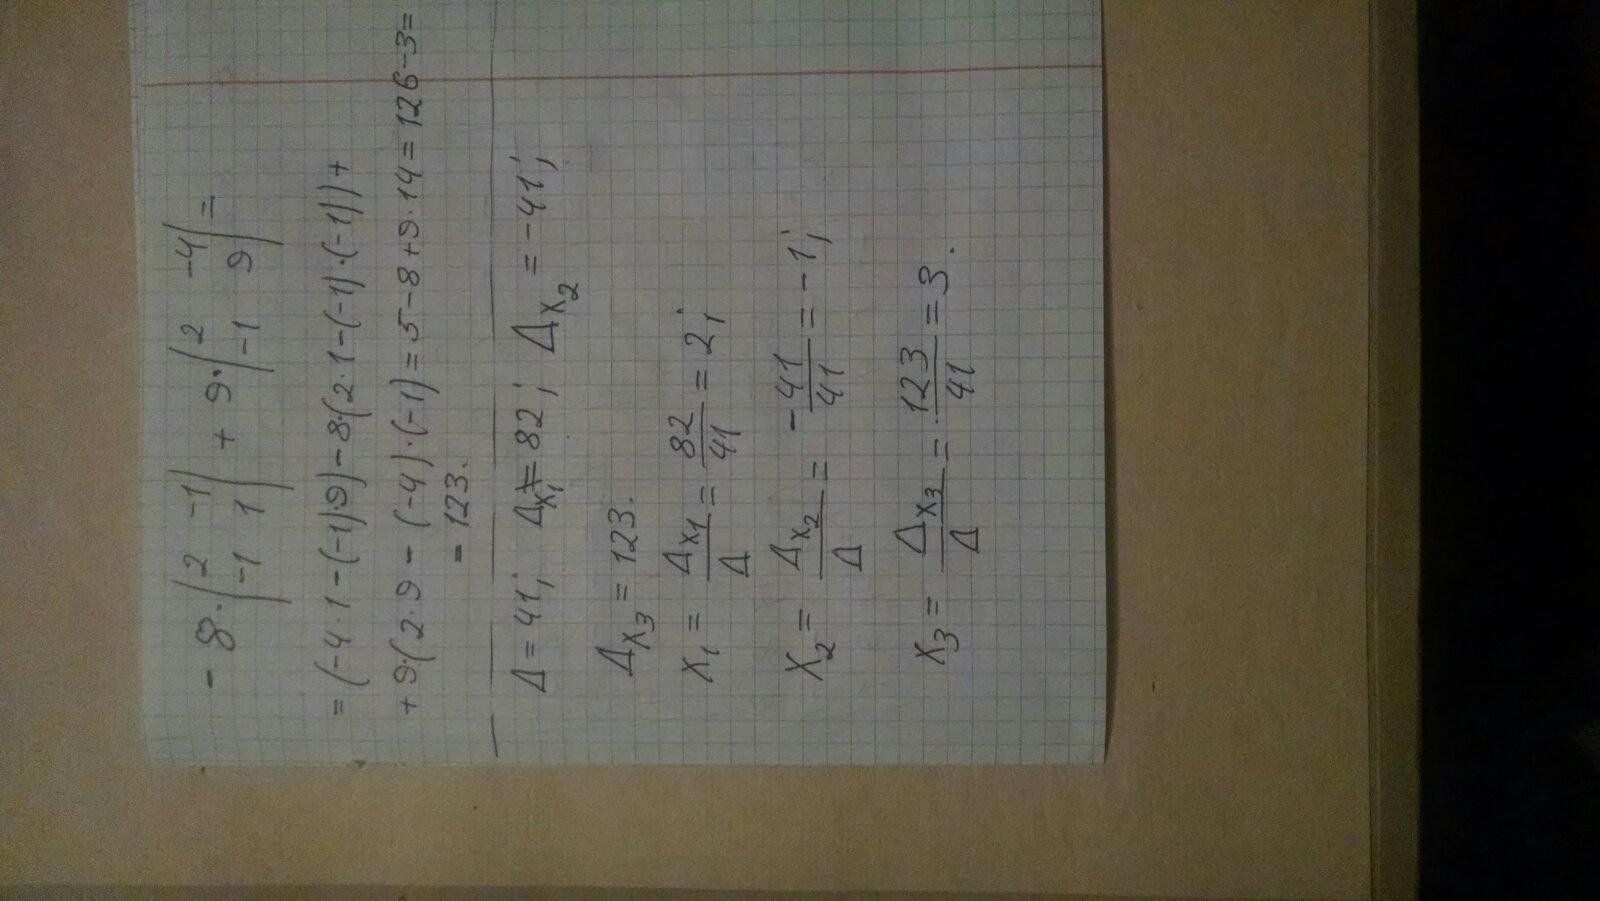 - 8·|2 -1| + 9·|2 -4| =
|-1 1| |-1 9|
= (-4·1-(-1)·9)-8·(2·1-(-1)·(-1))+
+9·(2·9-(-4)·(-1))=5-8+9·14=126-3=
= 123.
Δ = 41; Δx₁ = 82; Δx₂ = -41;
Δx₃ = 123.
x₁ = Δx₁/Δ = 82/41 = 2;
x₂ = Δx₂/Δ = -41/41 = -1;
x₃ = Δx₃/Δ = 123/41 = 3.